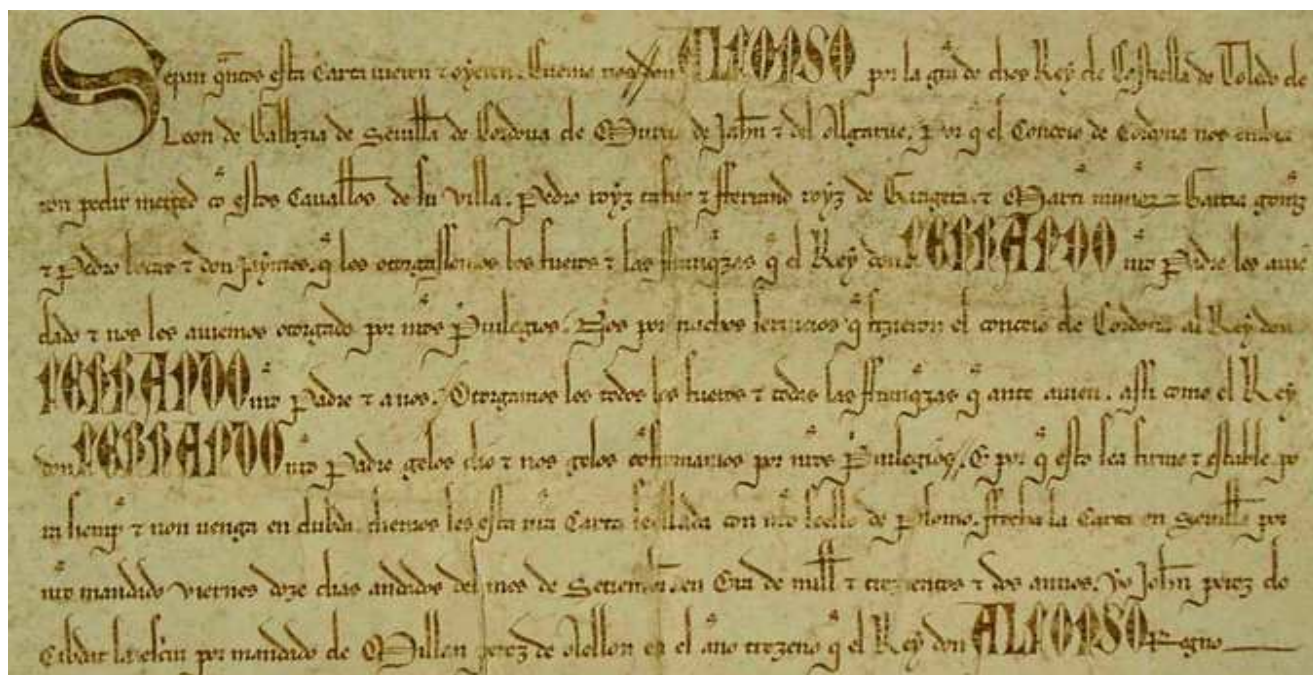 Sepan q̃ntos esta Carta uieren ⁊ oyeren. Cuemo nos don ALFONSO por la gr̃a de dios Rey de Castiella de Toledo de
Leon de Gallizia de Seuilla de Cordoua de Murcia de Jahen ⁊ del Algarue. Por q̃ el Conceio de Cordoua nos enbia
ron pedir merced cõ estos Caualłos de su villa. Pedro royz tafur ⁊ fferrand royz de ⁊ Martĩ munnoz ⁊ Garcia
⁊ Pedro ⁊ don Jaymes. q̃ les otorgassemos los fueros ⁊ las ffranq̃zas q̃ el Rey don FERRANDO nr̃o Padre les auie
dado ⁊ nos les auiemos otorgado por nr̃os Priuilegios. Nos por muchos seruicios q̃ fizieron el conceio de Cordoua al Rey don
FERRANDO nr̃o Padre ⁊ a nos. Otorgamos les todos los fueros ⁊ todas las ffranq̃zas q̃ ante auien. assi como el Rey
don FERRANDO nr̃o Padre gelos dio ⁊ nos gelos cõfirmamos por nr̃os Priuilegios. E por q̃ esto sea firme ⁊ estable. ⁊ non uenga en dubda. diemos les esta nr̃a Carta seellada con nr̃o seello de Plomo. ffecha la Carta en Seuilła por
nr̃o mandado viernes doze dias andados del mes de Setiembr̃. en Era de mill ⁊ trezientos ⁊ dos annos. yo Joħn perez de
Cibdat la escriui por mandado de Millan perez de Aellon en el anno trezeno q̃ el Rey don ALFONSO Regno